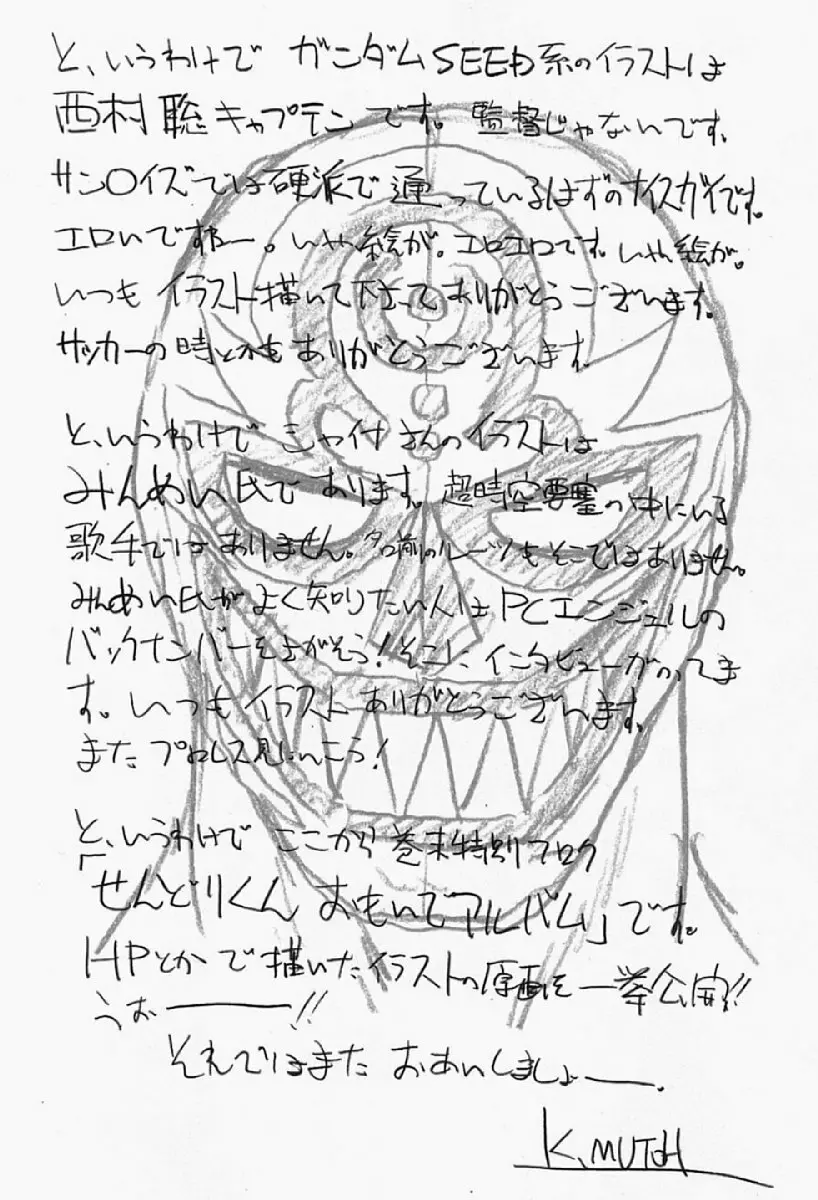 と、いうわけで ガンダムSEED系のイラストは
西村聡キャプテンです。監督じゃないです。
サン○イズでは硬派で通っているはずのナイスガイです。
エロいですねー。いや絵が。エロエロです。いや絵が。
いつもイラスト描いて下さってありがとうございます。
サッカーの時とかもありがとうございます。
と、いうわけで シャイナさんのイラストは
みんめい氏で あります。超時空要塞の中にいる
歌手ではありません。名前のルーツもそこではありません。
みんめい氏がよく知りたい人はPCエンジェルの
バックナンバーをさがそう!そこにインタビューがのってま
す。いつもイラストありがとうございます。
またプロレス見にいこう!
と、いうわけで ここから 巻末特別フロク
「せんどりくん おもいでアルバム」です。
HPとかで描いたイラストの原画を一挙公開!!
うおーーー!!
それではまた おあいしましょーー。
K.MUTOH